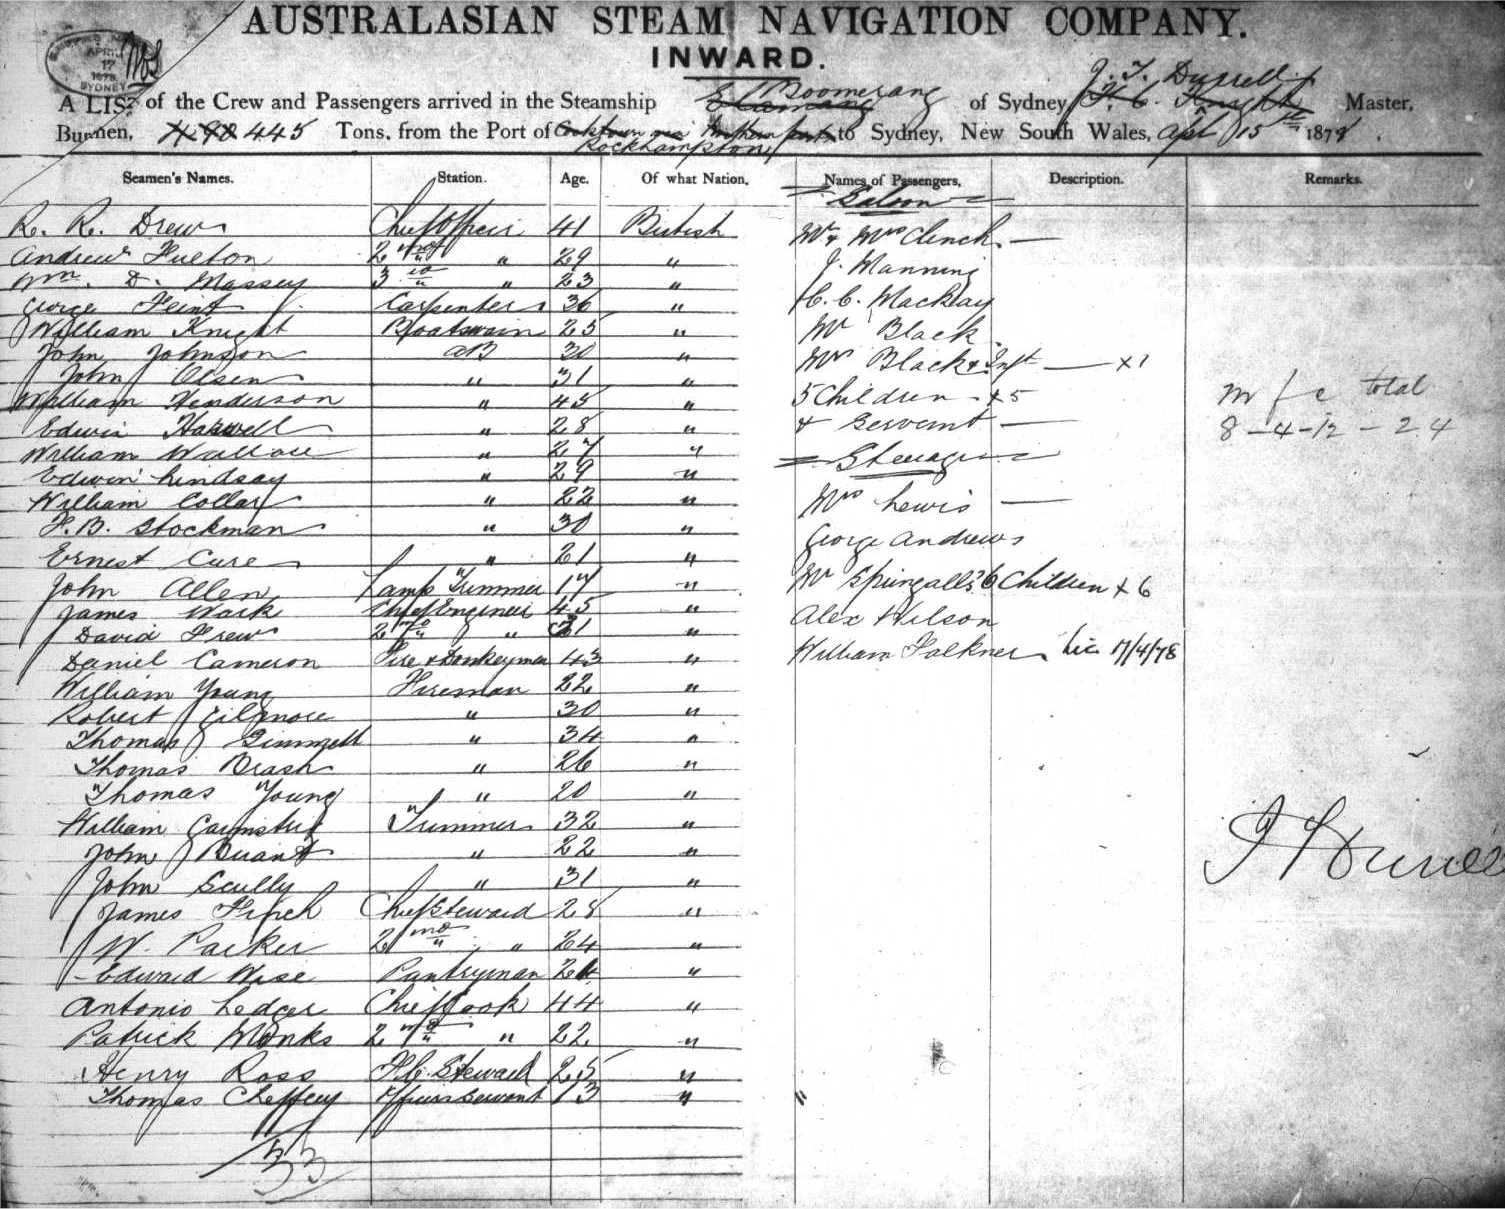 AUSTRALASIAN STEAM NAVIGATION COMPANY.
INWARD.
APRIL 17 1878 SYDNEY
J. T. Durrell
A LIST of the Crew and Passengers arrived in the Steamship Boomerang of Sydney, Master,
Burthen, 445 Tons, from the Port of Rockhampton, to Sydney, New South Wales, Apl 15th 1878.
Seamen's Names. Station. Age. Of what Nation. Names of Passengers. Description. Remarks.
Saloon
R. R. Drew Chief Officer 41 British Mr & Mrs Clinch —
Andrew Fulton 2nd " 29 " J. Manning
Wm. D. Massey 3rd " 23 " Mackay
George Flint Carpenter 36 " Mr Black
William Knight Boatswain 25 " Mrs Black & Inft — x1
John Johnson AB 30 "
John Olsen " 31 " 5 Children x5
William Henderson " 45 " & Servant —
Edwin " 28 " Steerage
William Wallace " 27 "
Edwin Lindsay " 29 "
William Collar " 22 " Mrs Lewis —
F. B. Stockman " 30 " George Andrews
Ernest Cure " 21 "
John Allen Lamp Trimmer 17 " Mr Springalls 6 Children x 6
James Wark Chief Engineer 45 " Alex Wilson
David Frew 2nd " 31 "
Daniel Cameron Fire & Donkeyman 43 " William Falkner 17/4/78
William Young Fireman 22 "
Robert Gilmore " 30 "
Thomas Gimmell " 34 "
Thomas Brash " 26 "
Thomas Young " 20 "
William Trimmer 32 "
John " 22 "
John Scully " 31 "
James Finch Chief Steward 28 "
W. Parker 2nd " 24 "
Edward Wise Pantryman 24 "
Antonio Ledger Chief Cook 44 "
Patrick Monks 2nd " 22 "
Henry Ross F.C. Steward 25 "
Thomas Cheffey Officers Servant 13 " "
33
m f c total
8 – 4 – 12 – 24
J T Durrell